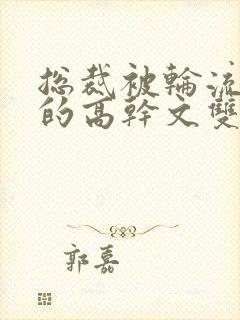 总裁被輪流
的高幹文雙
郭嘉